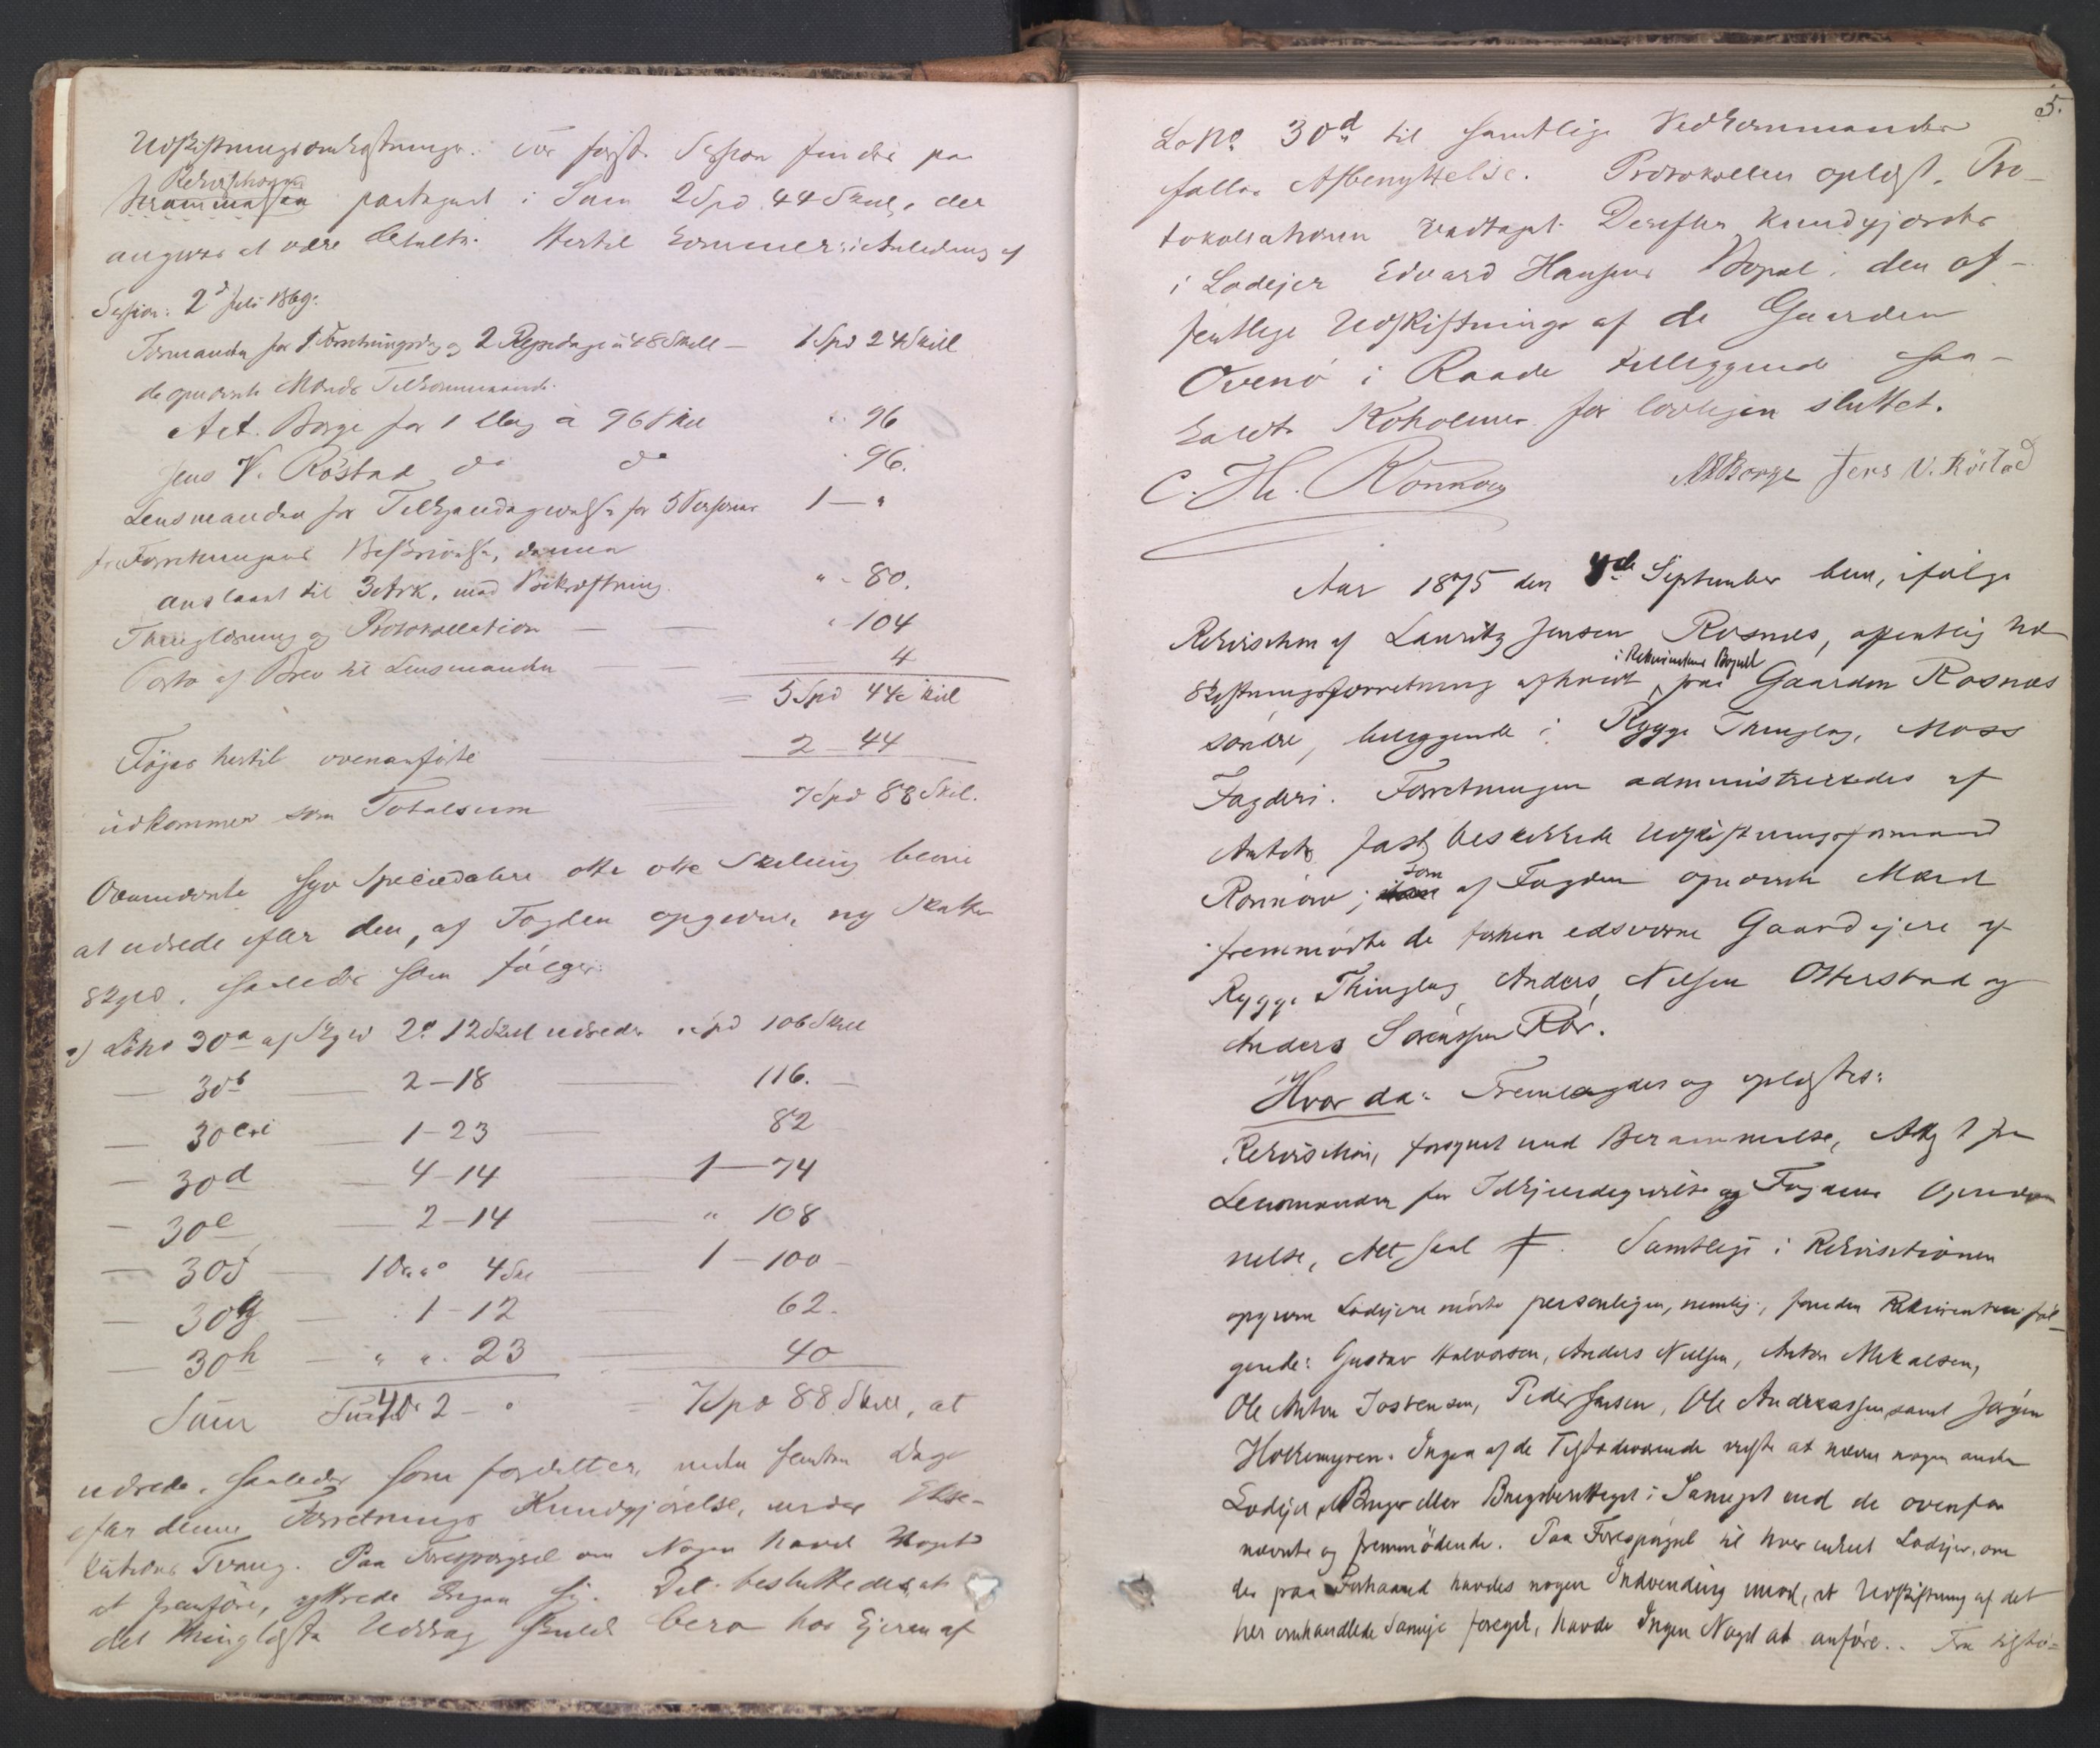 Udskiftningsomkostninger: Før første Session findes paa
Rekvisitionen
Berammelsen paategnet i Sum 2 Spd 44 Skill, der
angives at være betalte. Hertil kommer i Anledning af
Session: 2d Juli 1869:
Formanden for 1 Forretningsdag og 2 Reisedage à 48 Skill — 1 Spd 24 Skill
de opnævnte Mænds Tilkommende.
Art. Borge for 1 Dag à 96 Skill " 96
Jens V. Röstad do do " 96.
Lensmanden for Tilkjendegivelse for 5 Personer 1 — "
for Forretningens Beskrivelse, denne
anslaaet til 3 Ark, med Bekræftning " - 80.
Thinglæsning og Protokollation — — " 104
Porto af Brev til Lensmanden — — 4
= 5 Spd 44 Skill
Föjes hertil ovenanförte — 2 — 44
udkommer som Totalsum — 7 Spd 88 Skill.
Ovennævnte syv Speciedaler otte otte Skilling blive
at udrede efter den, af Fogden opgivne, ny Skatte-
skyld, saaledes som fölger:
a) Löbno 30a af Skyld 2d 12 Skill udreder " Spd 106 Skill
— 30b — 2—18 — 116. —
— 30c — 1—23 — 82
— 30d — 4—14 — 1—74
— 30e — 2—14 — " 108
— 30f — 1 Ort 4 Skl — 1—100 —
— 30g — 1—12 — 62.
— 30h — " ". 23 — 40
Sum 2 — " = 7 Spd 88 Skill, at
udrede, saaledes som fordeelt er, inden femten Dage
efter denne Forretnings Kundgjörelse, under Exe-
kutions Tvang. Paa Forespörgsel om Nogen havde Noget
at fremföre, yttrede Ingen sig. Det besluttedes, at
det thinglæste Uddrag skulde bero hos Ejeren af
5.
Lno 30d til samtlige Vedkommendes
fælles Afbenyttelse. Protokollen oplæst. Pro-
tokollationen vedtaget. Derefter kundgjordes
i Lodejer Edvard Hansens Bopæl, den of-
fentlige Udskiftning af de Gaarden
Ovenö i Raade tilliggende saa-
kaldte Koholmer for lovligen sluttet.
C. Th. Rönnow ABorge Jens V. Röstad
Aar 1875 den de September blev, ifölge
Rekvisition af Lauritz Jensen Rosnæs, offentlig Ud-
i Rekvirentens Bopæl
skiftningsforretning afholdt paa Gaarden Rosnæs
söndre, beliggende i Rygge Thinglag, Moss
Fogderi. Forretningen administreredes af
Amtets fast beskikkede Udskiftningsformand
Rönnow; som af Fogden opnævnte Mænd
fremmödte de forhen edsvorne Gaardejere af
Rygge Thinglag Anders Nilsen Otterstad og
Anders Sörensen Rör.
Hvor da: Fremlagdes og oplæstes:
Rekvisition, forsynet med Berammelse, Attest fra
Lensmanden for Tilkjendegivelse og Fogdens Opnæv-
nelse, Alt saal. Samtlige i Rekvisitionen
opgivne Lodejere mödte personligen, nemlig, foruden Rekvirenten föl-
gende: Gustav Halvorsen, Anders Nielsen, Anton Mikalsen,
Ole Anton Jostensen, Peder Jensen, Ole Andreassen samt Jørgen
Holtemyren. Ingen af de Tilstedeværende vidste at nævne nogen anden
Lodejer, Bruger eller Brugsberettiget i Sameiet end de ovenfor
nævnte og fremmödende. Paa Forespörgsel til hver enkelt Lodejer, om
der paa Forhaand havdes nogen Indvending imod, at Udskiftning af det
her omhandlede Sameje foregik, havde Ingen Noget at anföre.